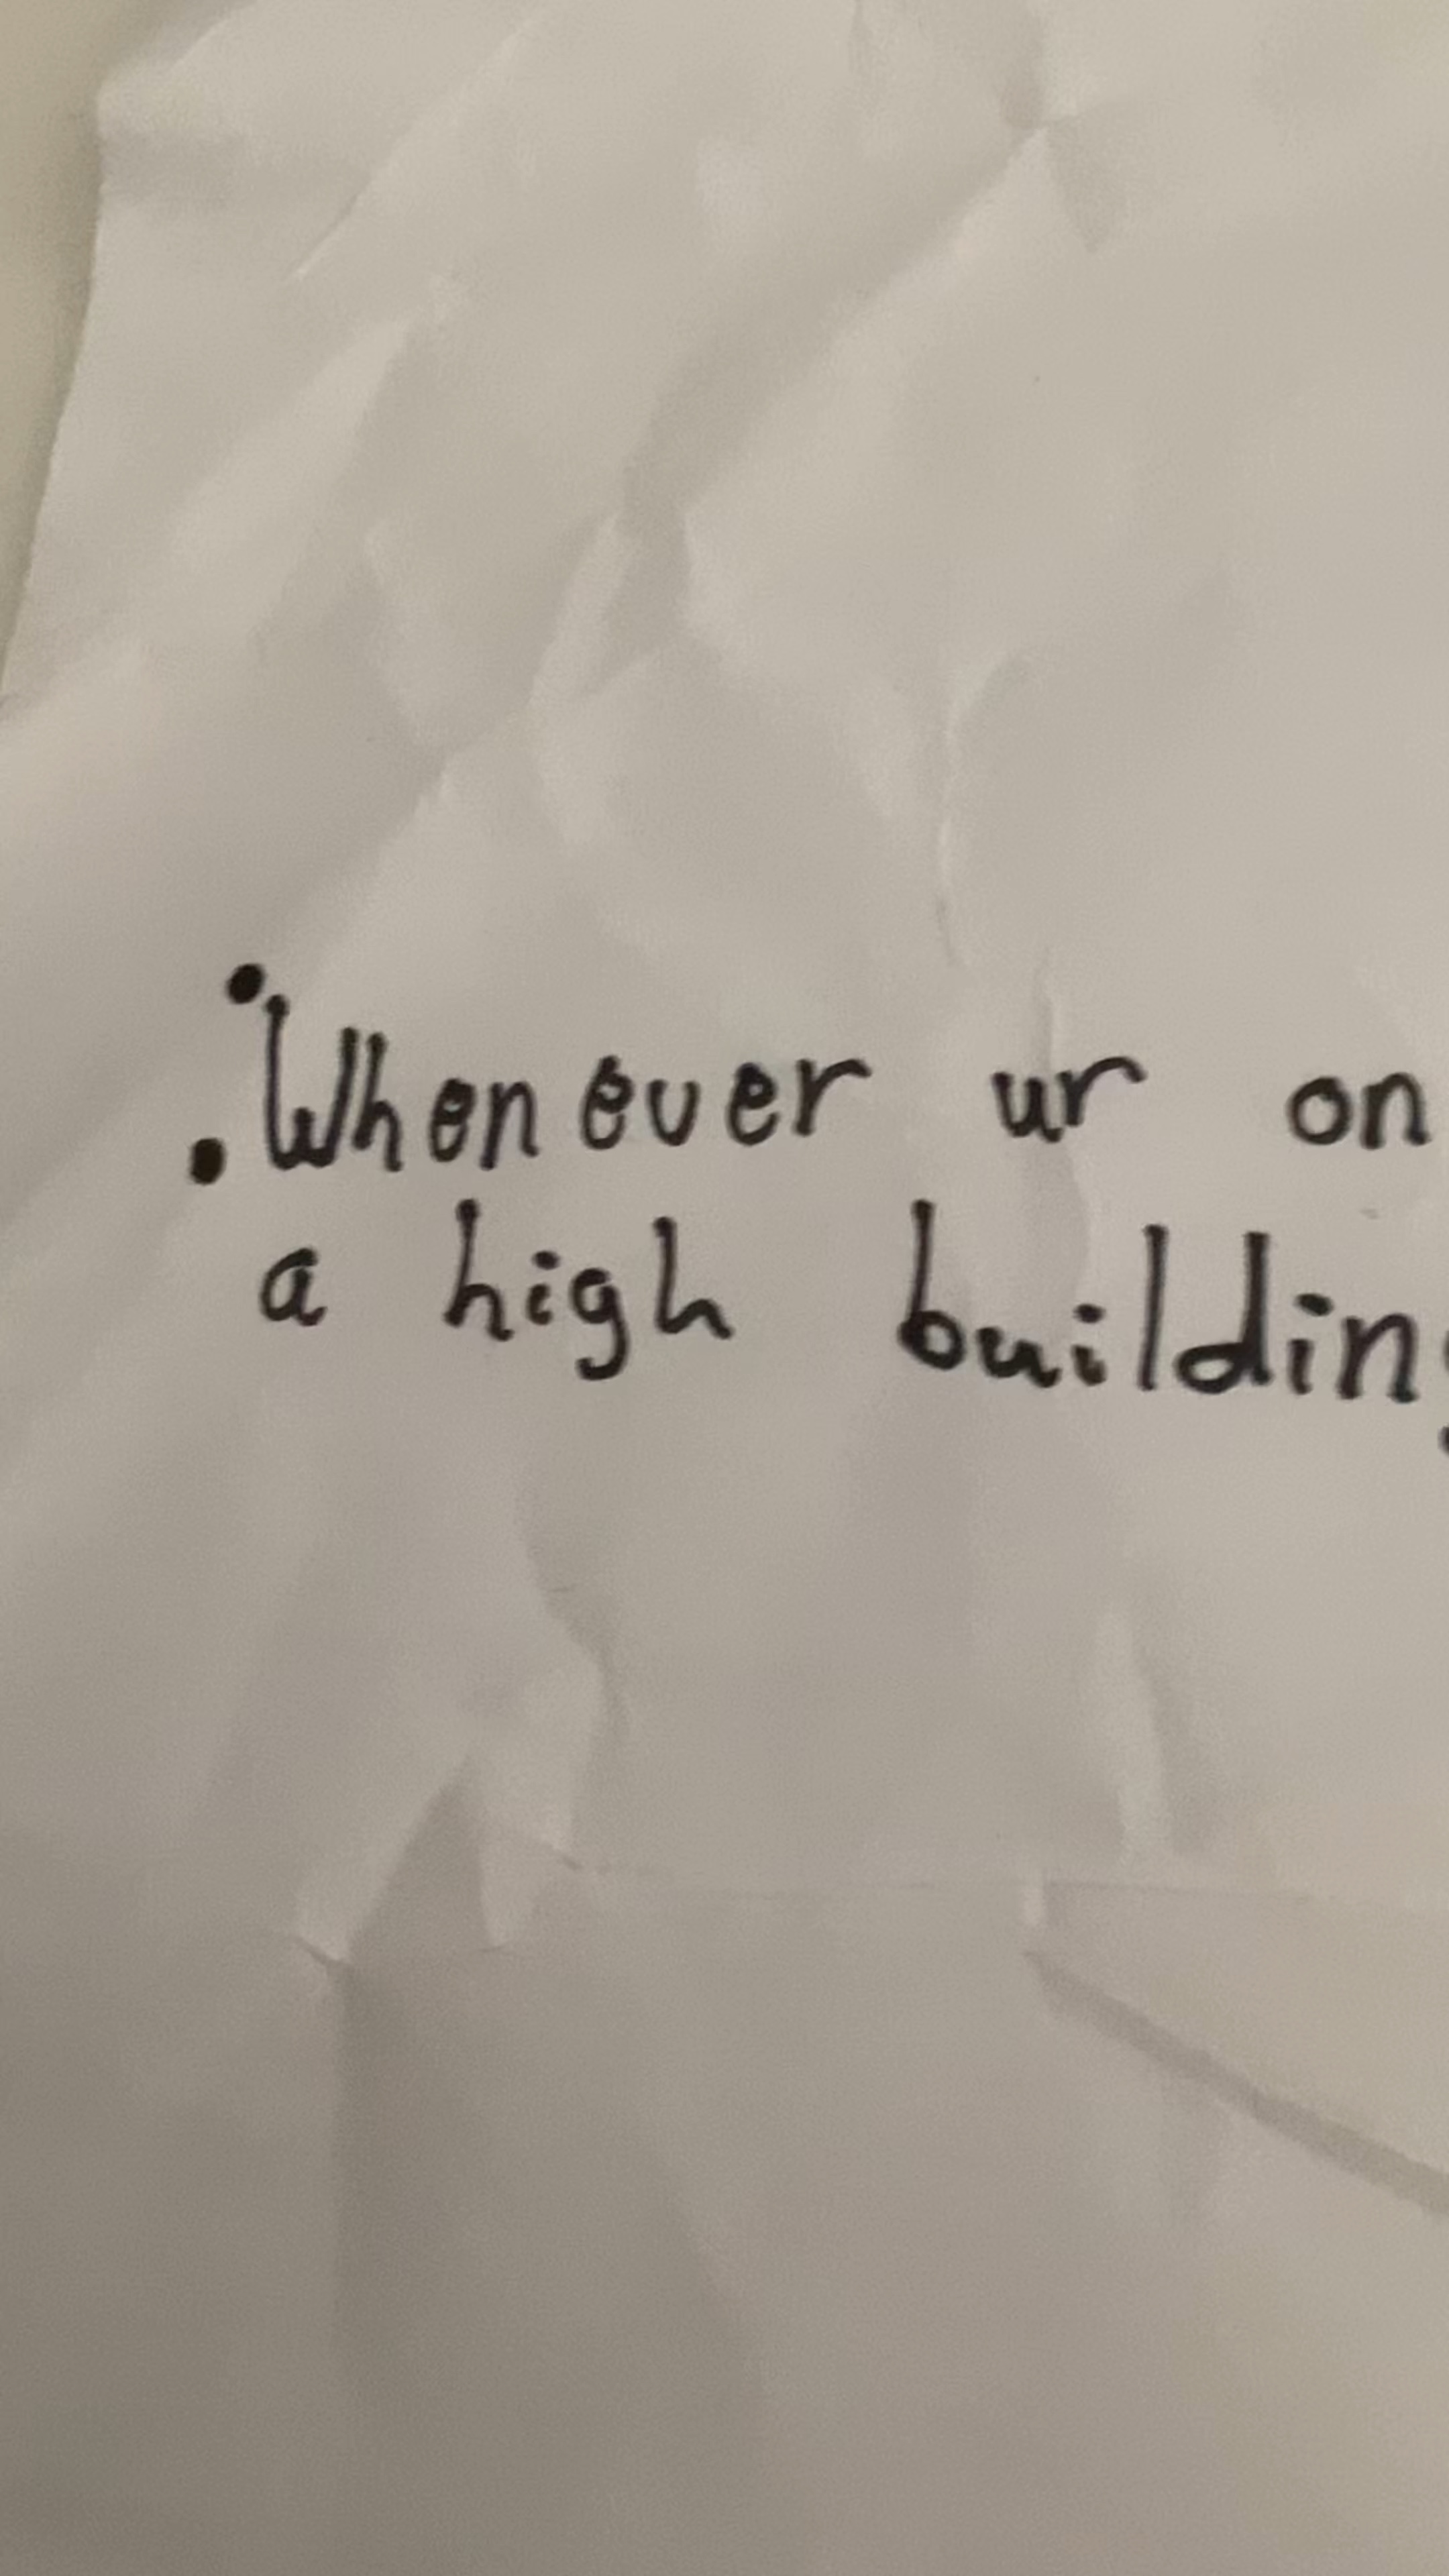 Whenever ur on
a high building